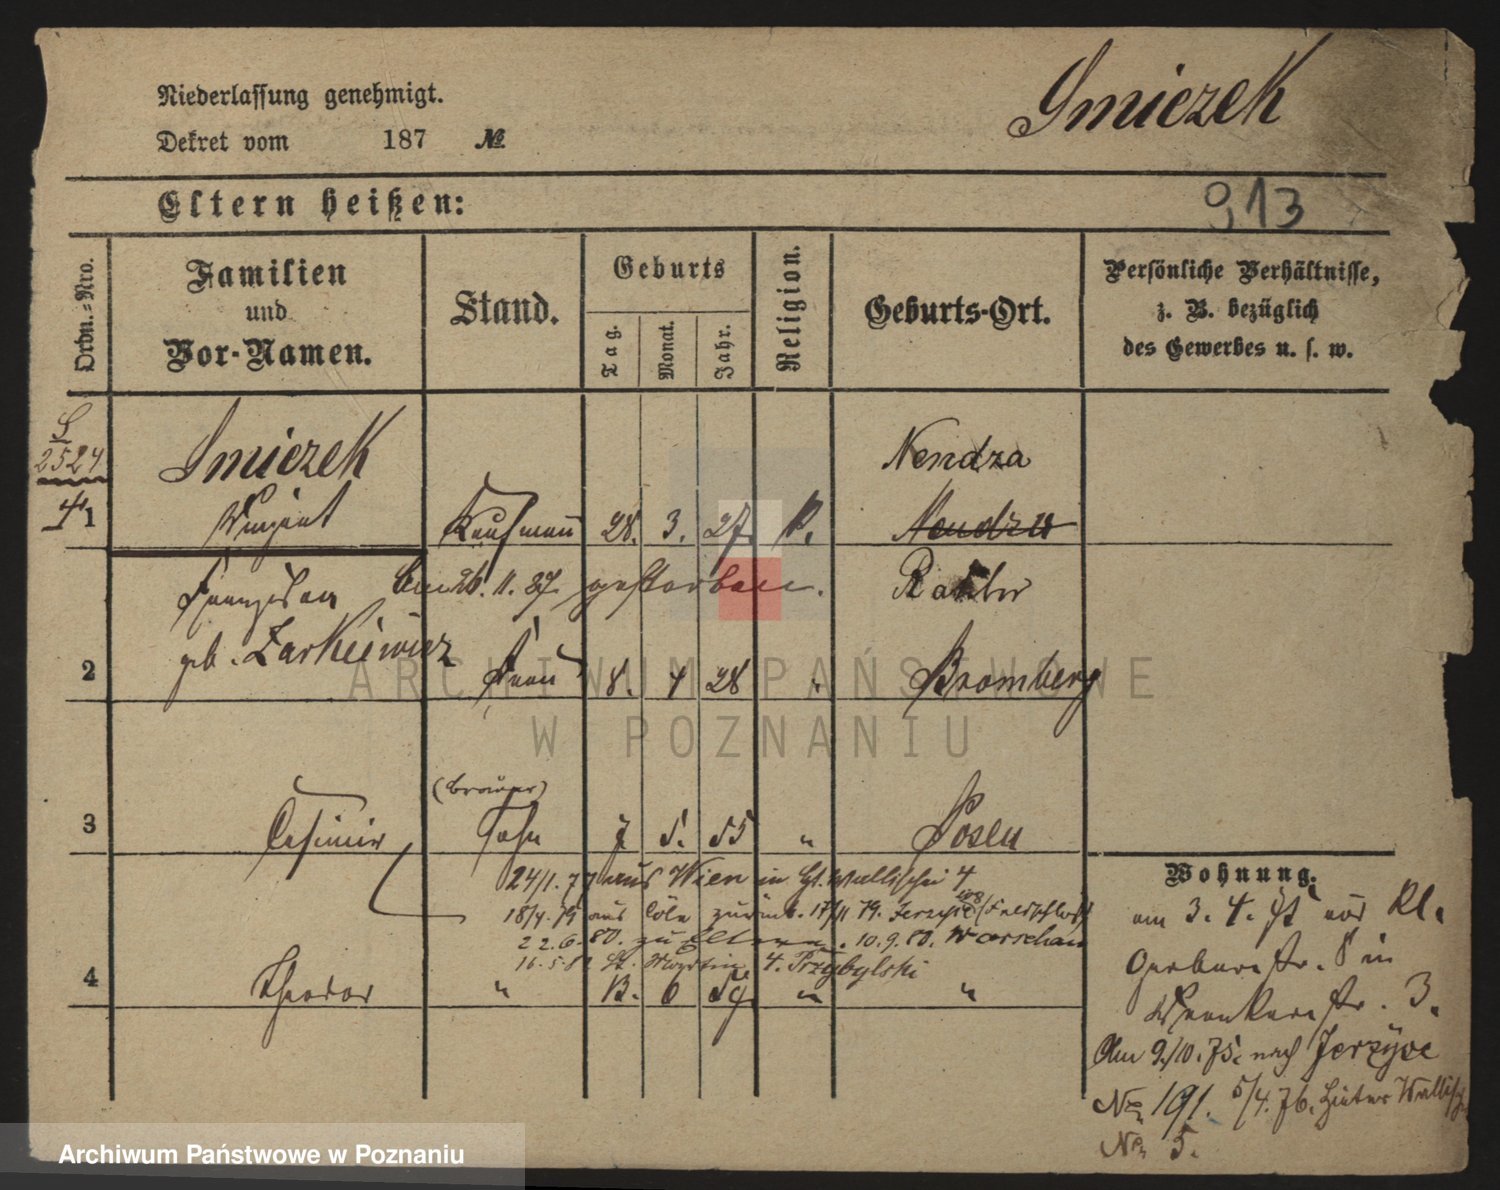 Niederlassung genehmigt.
Smiczek
Dekret vom 187 №
Eltern heißen:
913
Ordn.-Nro.
Familien
und
Vor-Namen.
Stand.
Geburts
Tag.
Monat.
Jahr.
Religion.
Geburts-Ort.
Persönliche Verhältnisse,
z. B. bezüglich
des Gewerbes u. s. w.
S
2524
Smiczek
Nendza
1
Vinzent
Kaufmann
28. 3. 27. K.
Nendza
Franziska
am 26. 11. 87. gestorben.
Ratibor
geb. Zarkiewicz
2
Frau
8. 4 28 "
Bromberg
ARCHIWUM PAŃSTWOWE
W POZNANIU
(Brauer)
3
Casimir
Sohn
7 5. 55 "
Posen
24/1. 77 aus Wien in Wallischei 4
18/4. 79 aus Cöln zurück. 17/11 79. Jerzyce
22.6.80. zu Eltern. 10.9.80. Warschau
16.5.82 St. Martin 4. Przybylski
4
Theodor
" 13. 6 59 " "
Wohnung.
am 3. 4. von Kl.
Gerberstr. 8 in
Wronkerstr. 3.
Am 9/10. 75. nach Jerzyce
No 191. 5/4. 76. Hinter Wallisch
No 5.
Archiwum Państwowe w Poznaniu